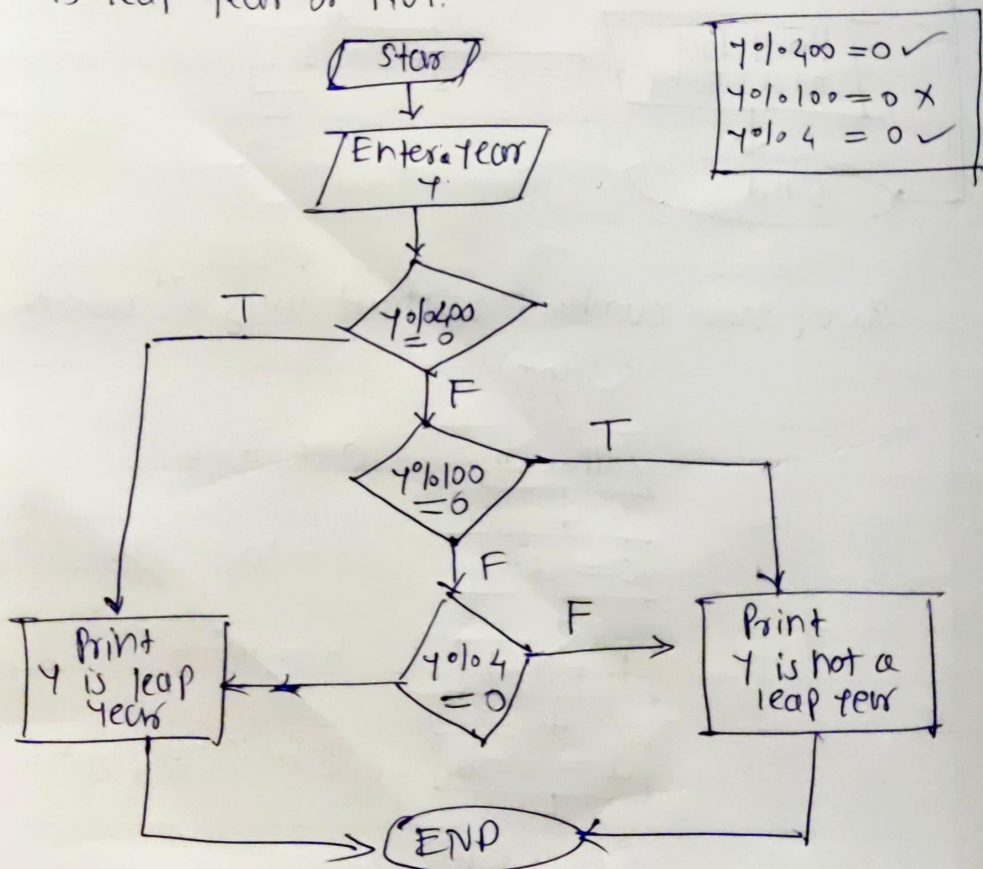 is leap year or Not.
Star
y%400 = 0 ✓
y%100 = 0 X
y% 4 = 0 ✓
Enter a Year
Y.
T
y%400
= 0
F
T
y%100
= 0
F
F
y% 4
= 0
Print
Y is leap
Year
Print
Y is not a
leap year
END